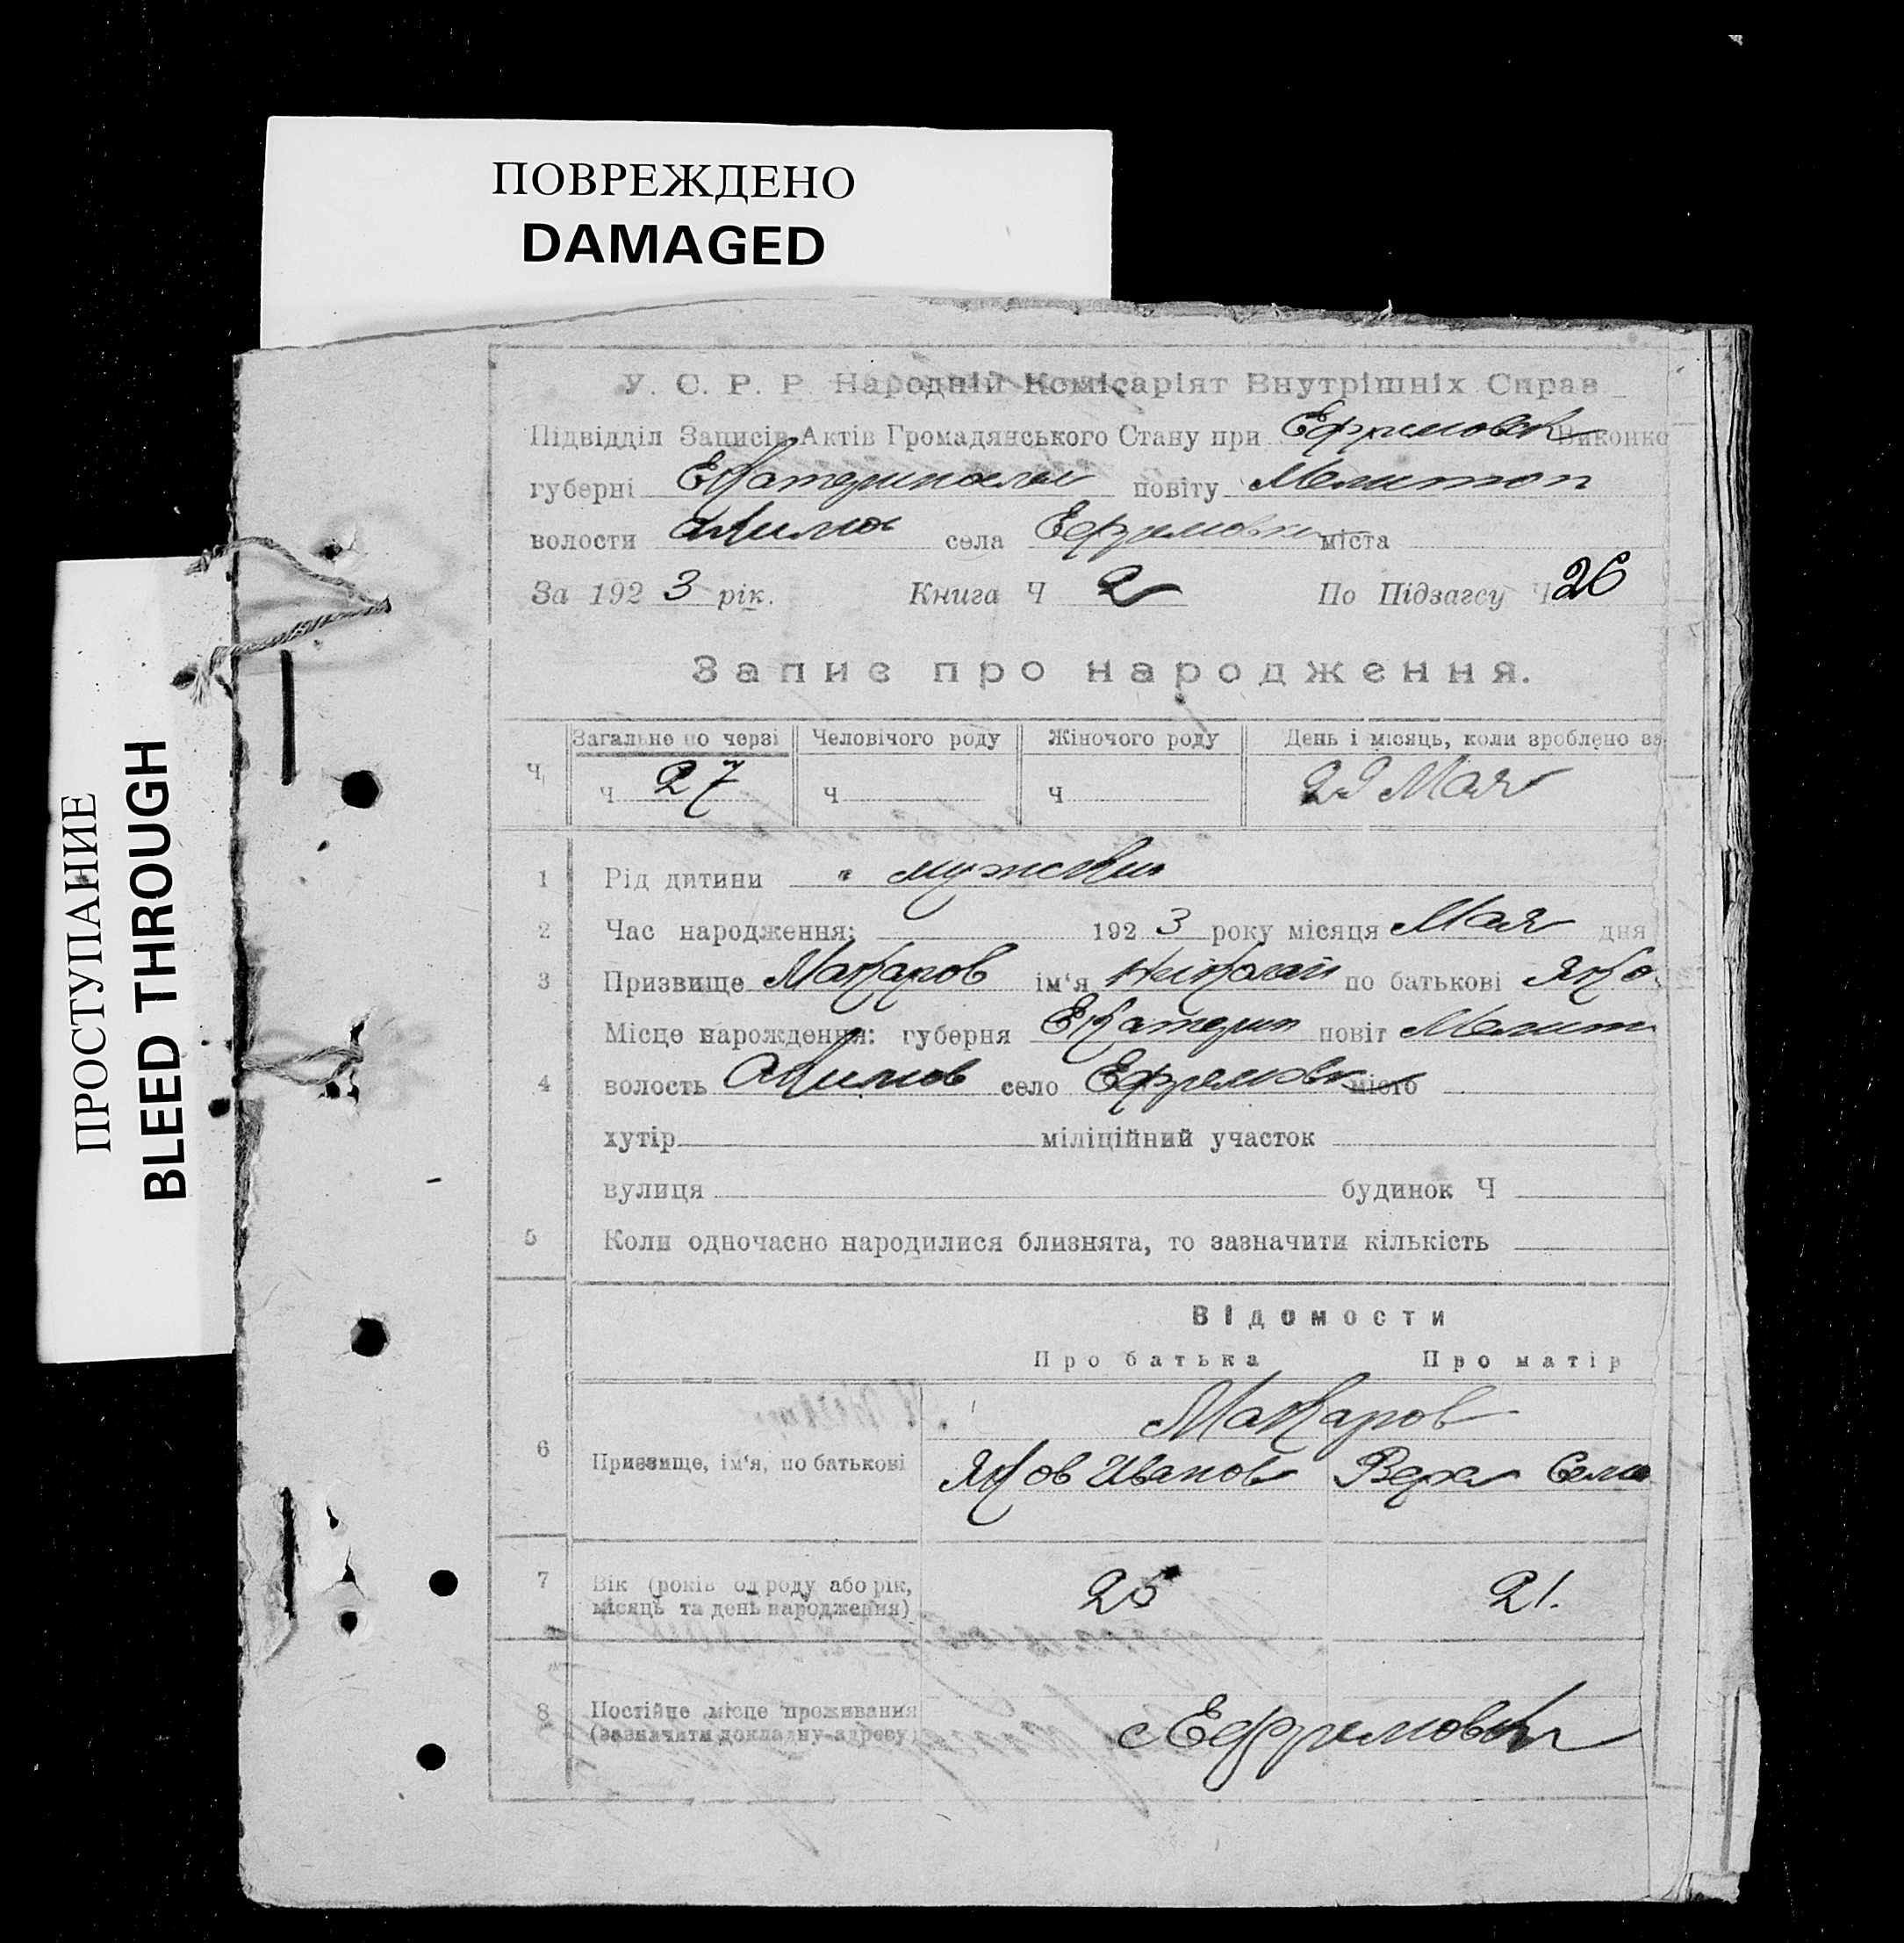 ПОВРЕЖДЕНО
DAMAGED
ПРОСТУПАНИЕ
BLEED THROUGH
У. С. Р. Р. Народній Комісаріят Внутрішніх Справ
Підвідділ Записів Актів Громадянського Стану при Ефремовк Виконко
губерні Екатеринослав повіту Мелитоп
волости Акимов села Ефремовки міста
За 1923 рік. Книга Ч 2 По Підзагсу Ч 26
Запис про народження.
Загальне по черзі Человічого роду Жіночого роду День і місяць, коли зроблено за
Ч. ч 27 ч ч 29 Мая
1 Рід дитини мужски
2 Час народження: 1923 року місяця Мая дня
3 Призвище Макаров ім'я Николай по батькові Яко
Місце народження: губерня Екатерин повіт Мелит
4 волость Акимов село Ефремовк місто
хутір міліційний участок
вулиця будинок Ч
5 Коли одночасно народилися близнята, то зазначити кількість
Відомости
Про батька Про матір
Макаров
6 Призвище, ім'я, по батькові Яков Иванов Вера Сем
7 Вік (років од роду або рік, 25 21.
місяць та день народження)
8 Постійне місце проживання с Ефремовк
(зазначити докладну адресу)